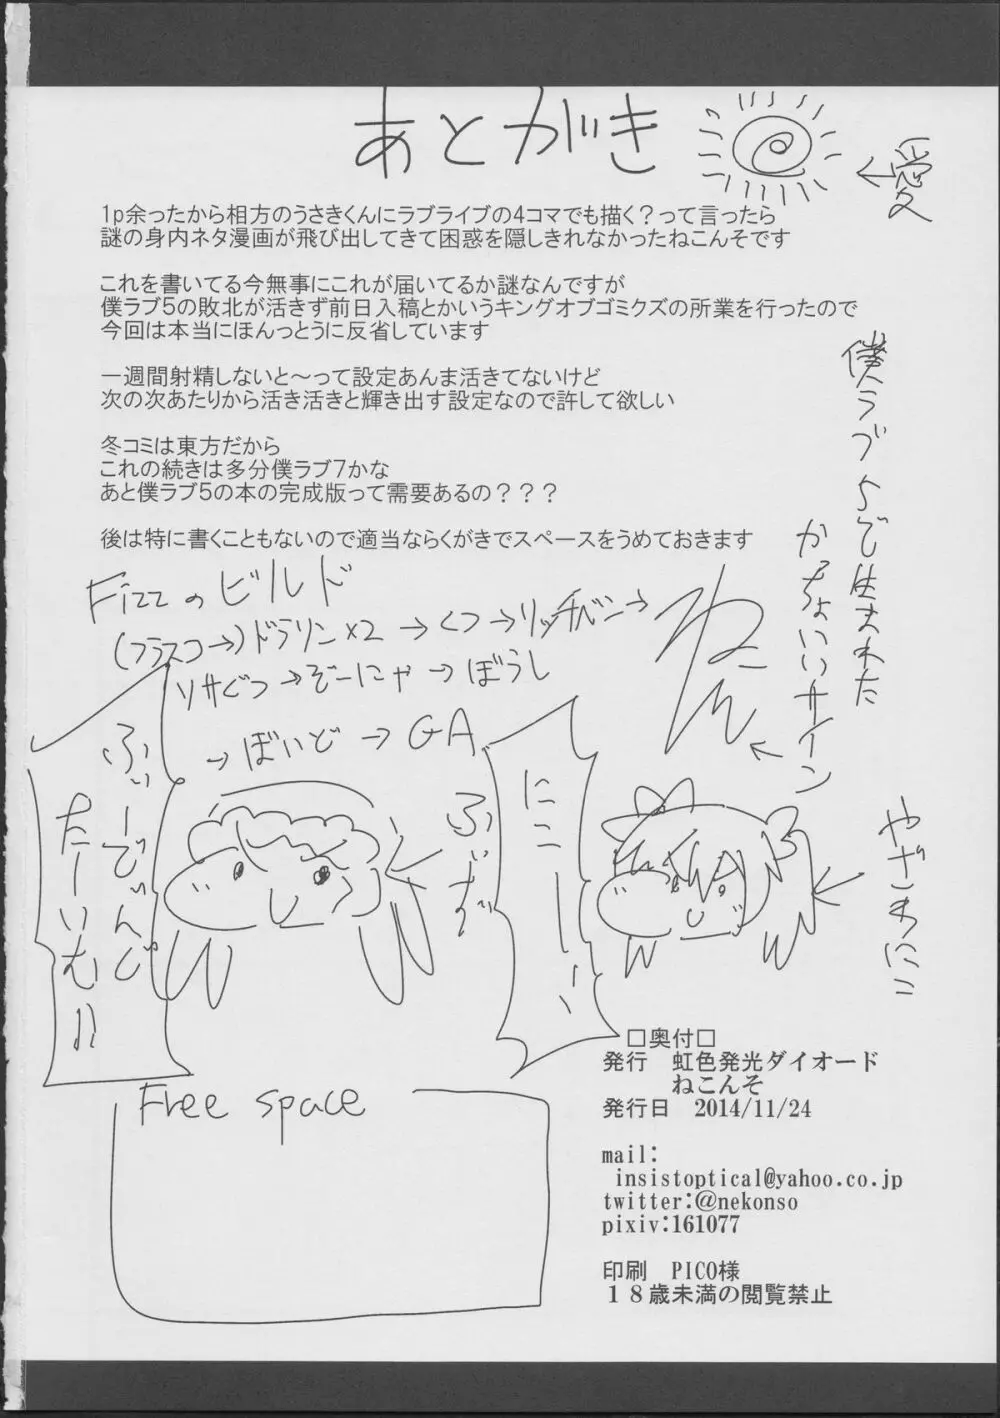 あとがき
←愛
1p余ったから相方のうさきくんにラブライブの4コマでも描く？って言ったら
謎の身内ネタ漫画が飛び出してきて困惑を隠しきれなかったねこんそです
これを書いてる今無事にこれが届いてるか謎なんですが
僕ラブ5の敗北が活きず前日入稿とかいうキングオブゴミクズの所業を行ったので
今回は本当にほんっとうに反省しています
一週間射精しないと～って設定あんま活きてないけど
次の次あたりから活き活きと輝き出す設定なので許して欲しい
冬コミは東方だから
これの続きは多分僕ラブ7かな
あと僕ラブ5の本の完成版って需要あるの？？？
後は特に書くこともないので適当ならくがきでスペースをうめておきます
僕ラブ5で生まれた
かっちょいいサイン
Fizzのビルド
(フラスコ→)ドラリン×2→くつ→リッチベン→
ソサぐつ→ぞーにゃ→ぼうし
→ぼいど→GA
ねこん
ふぃーでぃんぐ
たーいむ!!
ふぃず
にこーーー
やざわにこ
Free space
□奥付□
発行　虹色発光ダイオード
ねこんそ
発行日　2014/11/24
mail:
insistoptical@yahoo.co.jp
twitter:@nekonso
pixiv:161077
印刷　PICO様
１８歳未満の閲覧禁止